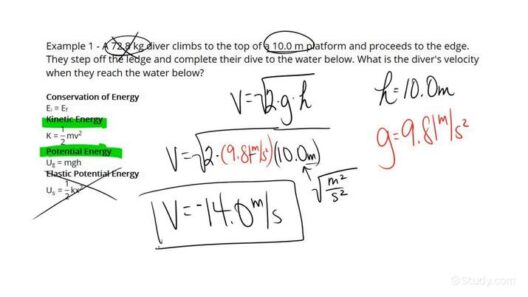 Example 1 - A 72.8 kg diver climbs to the top of a 10.0 m platform and proceeds to the edge.
They step off the ledge and complete their dive to the water below. What is the diver's velocity
when they reach the water below?
Conservation of Energy
Eᵢ = E_f
Kinetic Energy
K = ½mv²
Potential Energy
U_g = mgh
Elastic Potential Energy
Uₛ = ½kx²
V=√2·g·h
V=√2·(9.81 m/s²)(10.0m)
√m²/s²
V=-14.0 m/s
h=10.0m
g=9.81 m/s²
Study.com